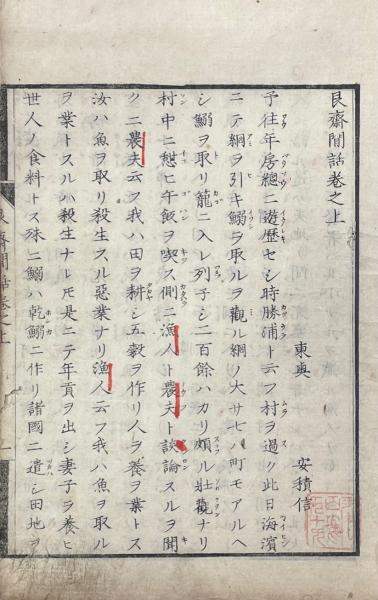 艮齋閒話卷之上
東奧 安積信
予往年房總ニ遊歷セシ時勝浦ト云フ村ヲ過ク此日海濱
ニテ網ヲ引キ鰯ヲ取ルヲ觀ル網ノ大サ七八町モアルヘ
シ鰯ヲ取リ籠ニ入レ列子シ二百餘ハカリ頗ル壯觀ナリ
村中ニ憩ヒ午飯ヲ喫ス側ニ漁人ト農夫ト談論スルヲ聞
クニ農夫云フ我ハ田ヲ耕シ五穀ヲ作リ人ヲ養ヲ業トス
汝ハ魚ヲ取リ殺生スル惡業ナリ漁人云フ我ハ魚ヲ取ル
ヲ業トスルハ殺生ナレ𪜈是ニテ年貢ヲ出シ妻子ヲ養ヒ
世人ノ食料トス殊ニ鰯ハ乾鰯ニ作リ諸國ニ遣シ田地ヲ